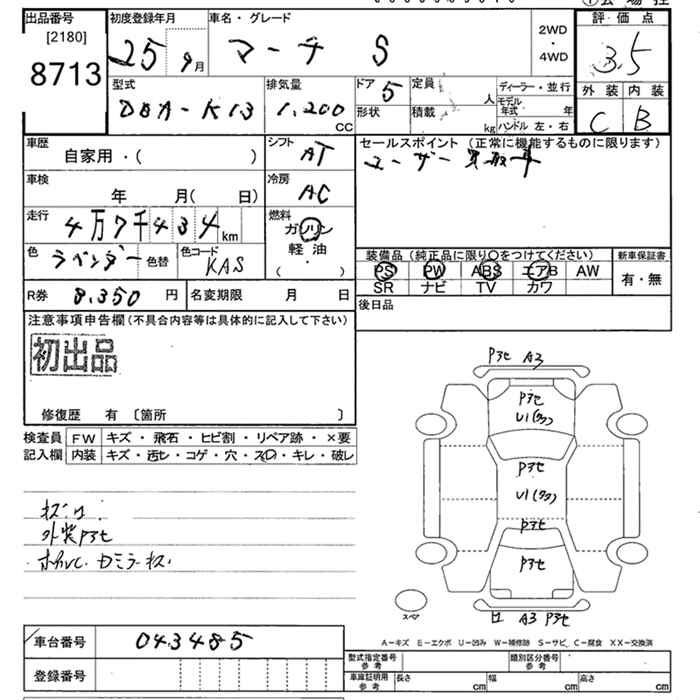 出品番号
[2180]
8713
初度登録年月
25 9月
車名・グレード
マーチ S
2WD
・
4WD
評価点
3.5
外装 内装
C B
型式
DBA-K13
排気量
1,200
CC
ドア 5
形状
定員
人
積載
kg
ディーラー・並行
モデル
年式 年
ハンドル 左・右
車歴
自家用・( )
シフト
AT
車検
年 月( 日)
冷房
AC
走行
4万7千434 km
燃料
ガソリン
軽油
( ・ )
色
ラベンダー
色替
色コード
KAS
R券 8,350 円
名変期限 月 日
セールスポイント (正常に機能するものに限ります)
ユーザー買取車
装備品 (純正品に限り○をつけてください)
PS PW ABS エアB AW
SR ナビ TV カワ
新車保証書
有・無
後日品
注意事項申告欄(不具合内容等は具体的に記入して下さい)
初出品
修復歴 有 〔箇所 〕
検査員
記入欄
FW キズ・飛石・ヒビ割・リペア跡・×要
内装 キズ・汚レ・コゲ・穴・スレ・キレ・破レ
外装Pヨセ
Pヨセ A3
Pヨセ
U1(タタ)
Pヨセ
U1(タタ)
Pヨセ
Pヨセ
スペア
A3 Pヨセ
A-キズ E-エクボ U-凹み W-補修跡 S-サビ C-腐食 XX-交換済
車台番号 043485
登録番号
型式指定番号
参考
類別区分番号
参考
車庫証明用
参考
長さ cm
幅 cm
高さ cm